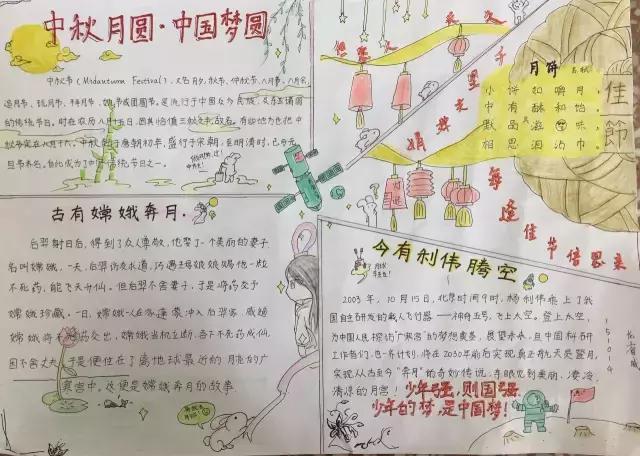 中秋月圆·中国梦圆
中秋节(Midautumn Festival),又名月夕,秋节,仲秋节,八月节,八月会
追月节,玩月节,拜月节,
节或团圆节,是流行于中国众多民族,及东亚诸国
的传统节日,时在农历八月十五日,因其恰值三秋之半故名,有些地方也把
中秋节定在八月十六,中秋节始于唐朝初年,盛行于宋朝,至明清时,已与元
旦节齐名,自此成为了中国传统节日之一。
但愿人长久
千里共婵娟
每逢佳节倍思亲
佳节
月饼 苏轼
小饼如嚼月,
中有酥和饴
默品其滋味,
相思泪沾巾
古有嫦娥奔月.
后羿射日后,得到了众人尊敬,他娶了一个美丽的妻子
名叫嫦娥,一天,后羿访友求道,巧遇王母娘娘赐他一粒
不死药,能飞天升仙,但后羿不舍妻子,于是将药交于
嫦娥珍藏,一日,嫦娥一人在家,逢蒙冲入后羿家,威逼
嫦娥将
药交出,嫦娥当机立断,吞下不死药成仙,
因不舍丈夫,于是便住在了离地球最近的月亮的广
寒宫中,这便是嫦娥奔月的故事
今有利伟腾空
2003年,10月15日,北京时间9时,杨利伟乘上了我
国自主研发的载人飞行器——神舟五号,飞上太空。登上太空,
为中国人民探访“广寒宫”的梦想奠基,展望未来,且中国科研
工作者们,已
计划,将在2030年前后实现真正航天员登月,
实现从古至今“奔月”的奇妙传说,亲眼见到美丽,凄冷,
清凉的月宫!
少年强,则国强
少年的梦,是中国梦!
151014